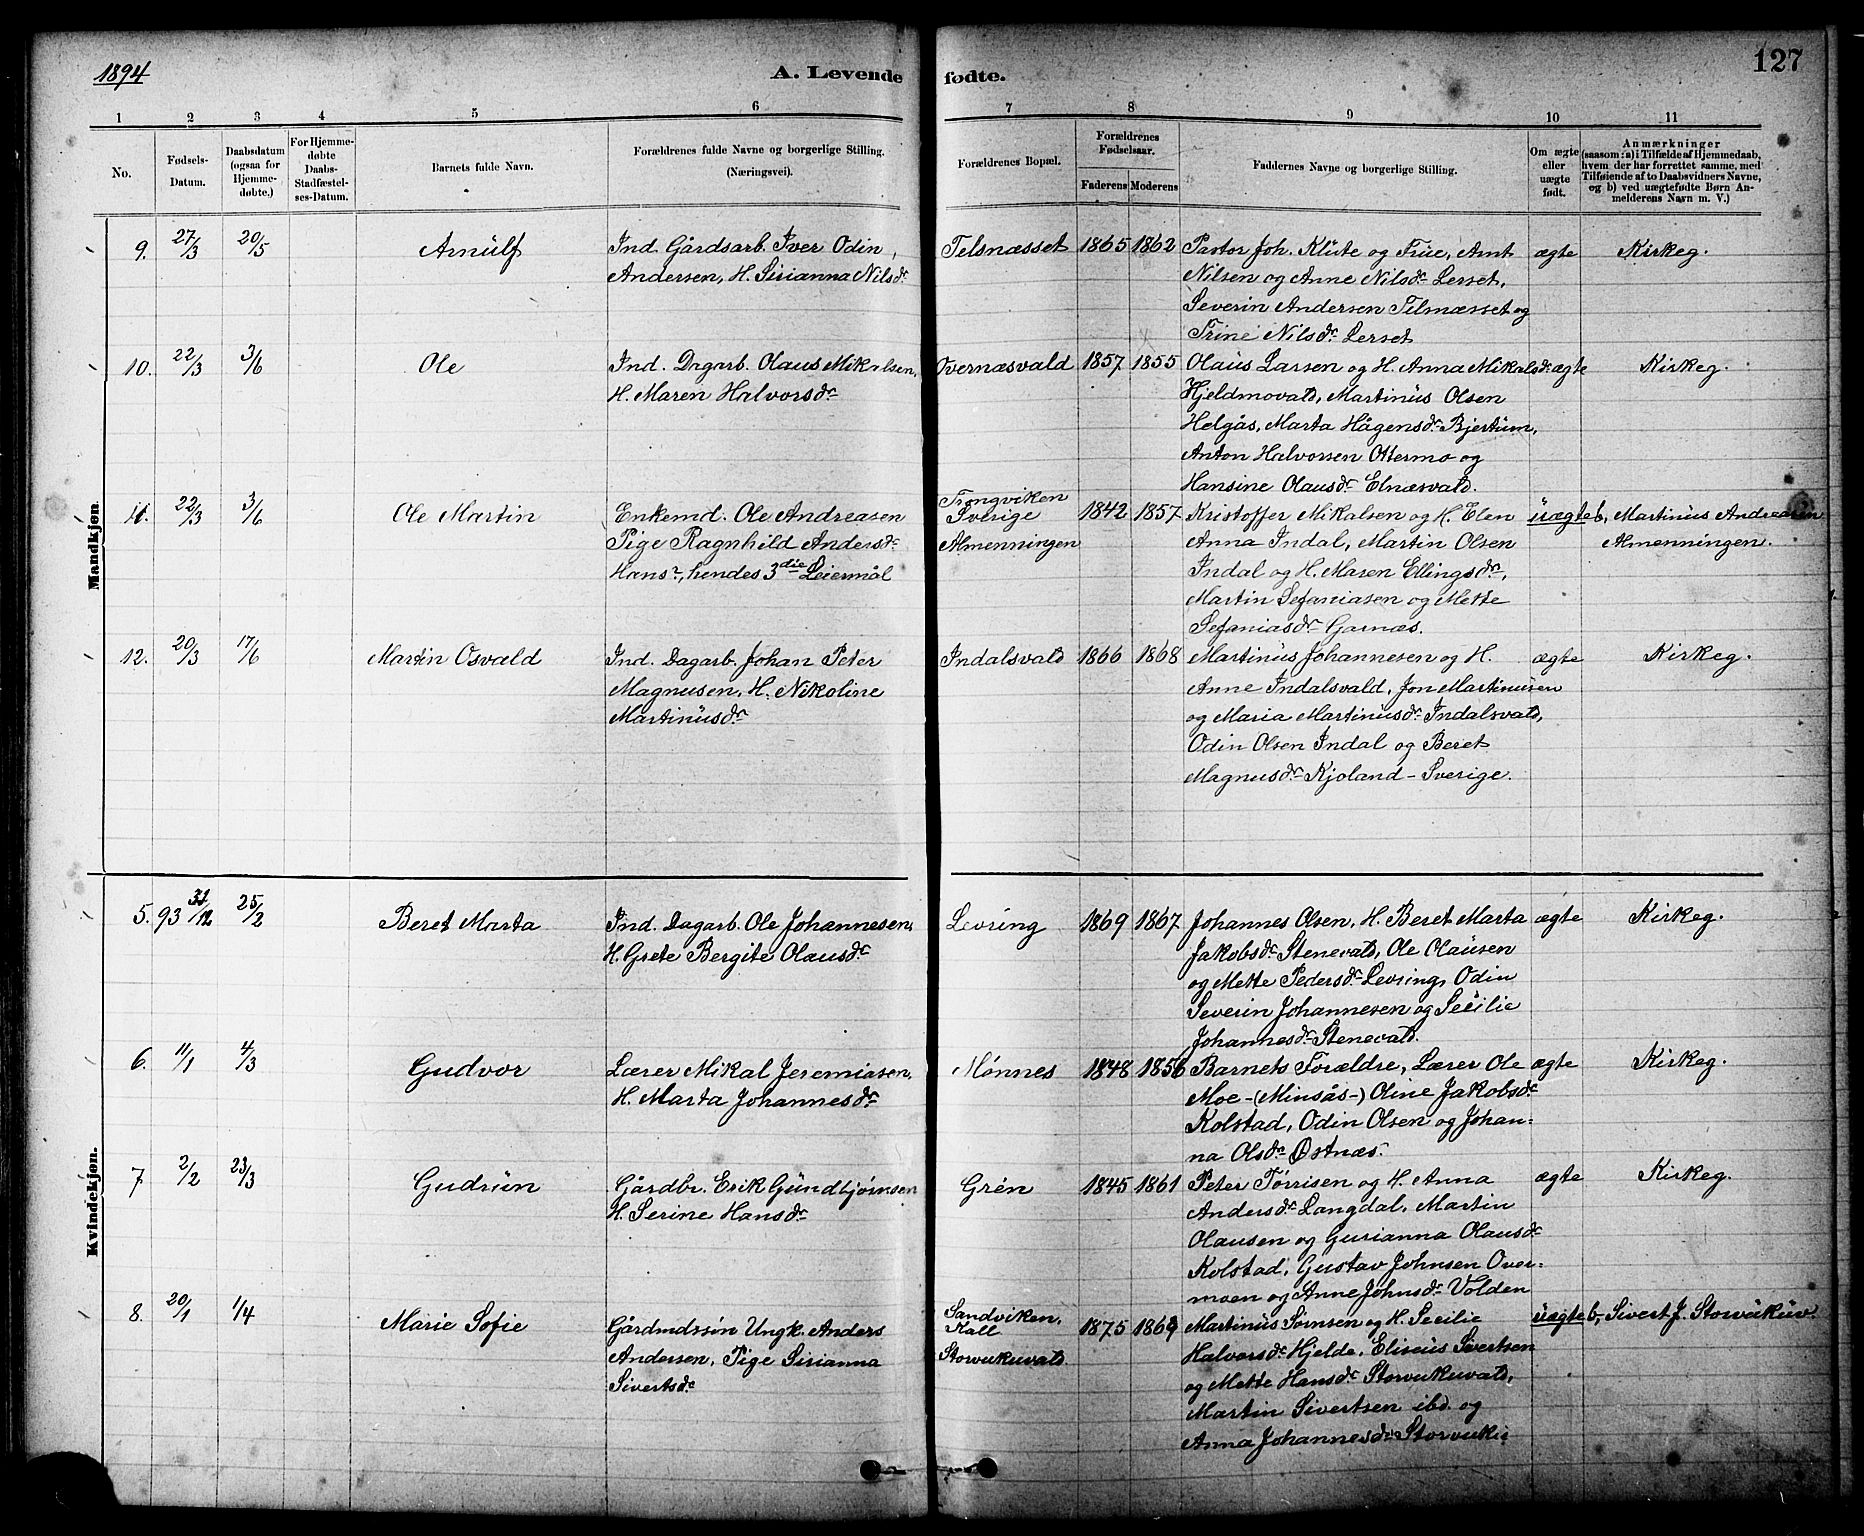 1894
A. Levende fødte.
127
1 2 3 4 5 6 7 8 9 10 11
No.
Fødsels-
Datum.
Daabsdatum
(ogsaa for
Hjemme-
døbte.)
For Hjemme-
døbte
Daabs-
Stadfæstel-
ses-Datum.
Barnets fulde Navn.
Forældrenes fulde Navne og borgerlige Stilling.
(Næringsvei).
Forældrenes Bopæl.
Forældrenes
Fødselsaar.
Faderens Moderens
Faddernes Navne og borgerlige Stilling.
Om ægte
eller
uægte
født.
Anmærkninger
(saasom: a) i Tilfælde af Hjemmedaab,
hvem der har forrettet samme, med
Tilføiende af to Daabsvidners Navne,
og b) ved uægtefødte Børn An-
melderens Navn m. V.)
Mandkjøn.
9. 27/3 20/5 Arnülf
Ind. Gårdsarb. Iver Odin
Andersen, H. Sirianna Nilsdr
Telsnæsset 1865 1862
Pastor Joh. Klüte og Früe, Arnt
Nilsen og Anne Nilsdr Lerset,
Severin Andersen Telsnæsset og
Trine Nilsdr Lerset
ægte Kirkeg.
10. 22/3 3/6 Ole
Ind. Dagarb. Olaus Mikalsen,
H. Maren Halvorsdr
Overnæsvald 1857 1855
Olaüs Larsen og H. Anna Mikalsdr
Hjeldmovald, Martinüs Olsen
Helgås, Marta Hågensdr Bjertüm,
Anton Halvorsen Ottermo og
Hansine Olausdr Elnæsvald.
ægte Kirkeg.
11. 22/3 3/6 Ole Martin
Enkemd. Ole Andreasen
Pige Ragnhild Andersdr
Hans?, hendes 3die Leiermål
Trongviken
Sverige
Almenningen
1842 1857
Kristoffer Mikalsen og H. Elen
Anna Indal, Martin Olsen
Indal og H. Maren Ellingsdr,
Martin Sefaniasen og Mette
Sefaniasdr Garnæs.
üægte b, Martinus Andreasen
Almenningen.
12. 20/3 17/6 Martin Osvald
Ind. Dagarb. Johan Peter
Magnusen, H. Nikoline
Martinüsdr
Indalsvald 1866 1868
Martinüs Johannesen og H.
Anne Indalsvald, Jon Martinüsen
og Maria Martinüsdr Indalsvald,
Odin Olsen Indal og Beret
Magnusdr Kjoland - Sverige.
ægte Kirkeg.
Kvindekjøn.
5. 93 31/12 25/2 Beret Marta
Ind. Dagarb. Ole Johannesen,
H. Grete Bergite Olausdr
Levring 1869 1867
Johannes Olsen, H. Beret Marta
Jakobsdr Stenevald, Ole Olaüsen
og Mette Pedersdr Levring, Odin
Severin Johannesen og Secilie
Johannesdr Stenevald.
ægte Kirkeg.
6. 11/1 4/3 Gudvor
Lærer Mikal Jeremiasen,
H. Marta Johannesdr
Mønnes 1848 1856
Barnets Forældre, Lærer Ole
Moe-(Minsås-) Oline Jakobsdr
Kolstad, Odin Olsen og Johan-
na Olsdr Østnæs.
ægte Kirkeg.
7 2/2 23/3 Gudrün
Gårdbr. Erik Gündbjørnsen
H. Serine Hansdr
Grén 1845 1861
Peter Tørrisen og H. Anna
Andersdr Langdal, Martin
Olausen og Gurianna Olausdr
Kolstad, Gustav Johnsen Over-
moen og Anne Johnsdr Volden
ægte Kirkeg.
8. 20/1 1/4 Marie Sofie
Gårdmdssøn Ungk. Anders
Andersen, Pige Sirianna
Sivertsdr
Sandviken,
Kall
Storvukuvald
1875 1869
Martinüs Sørnsen og H. Secilie
Halvorsdr Hjelde, Eliseüs Sivertsen
og Mette Hansdr Storvukuvald,
Martin Sivertsen ibd. og
Anna Johannesdr Storvuku
üægte b, Sivert J. Storvukuv.